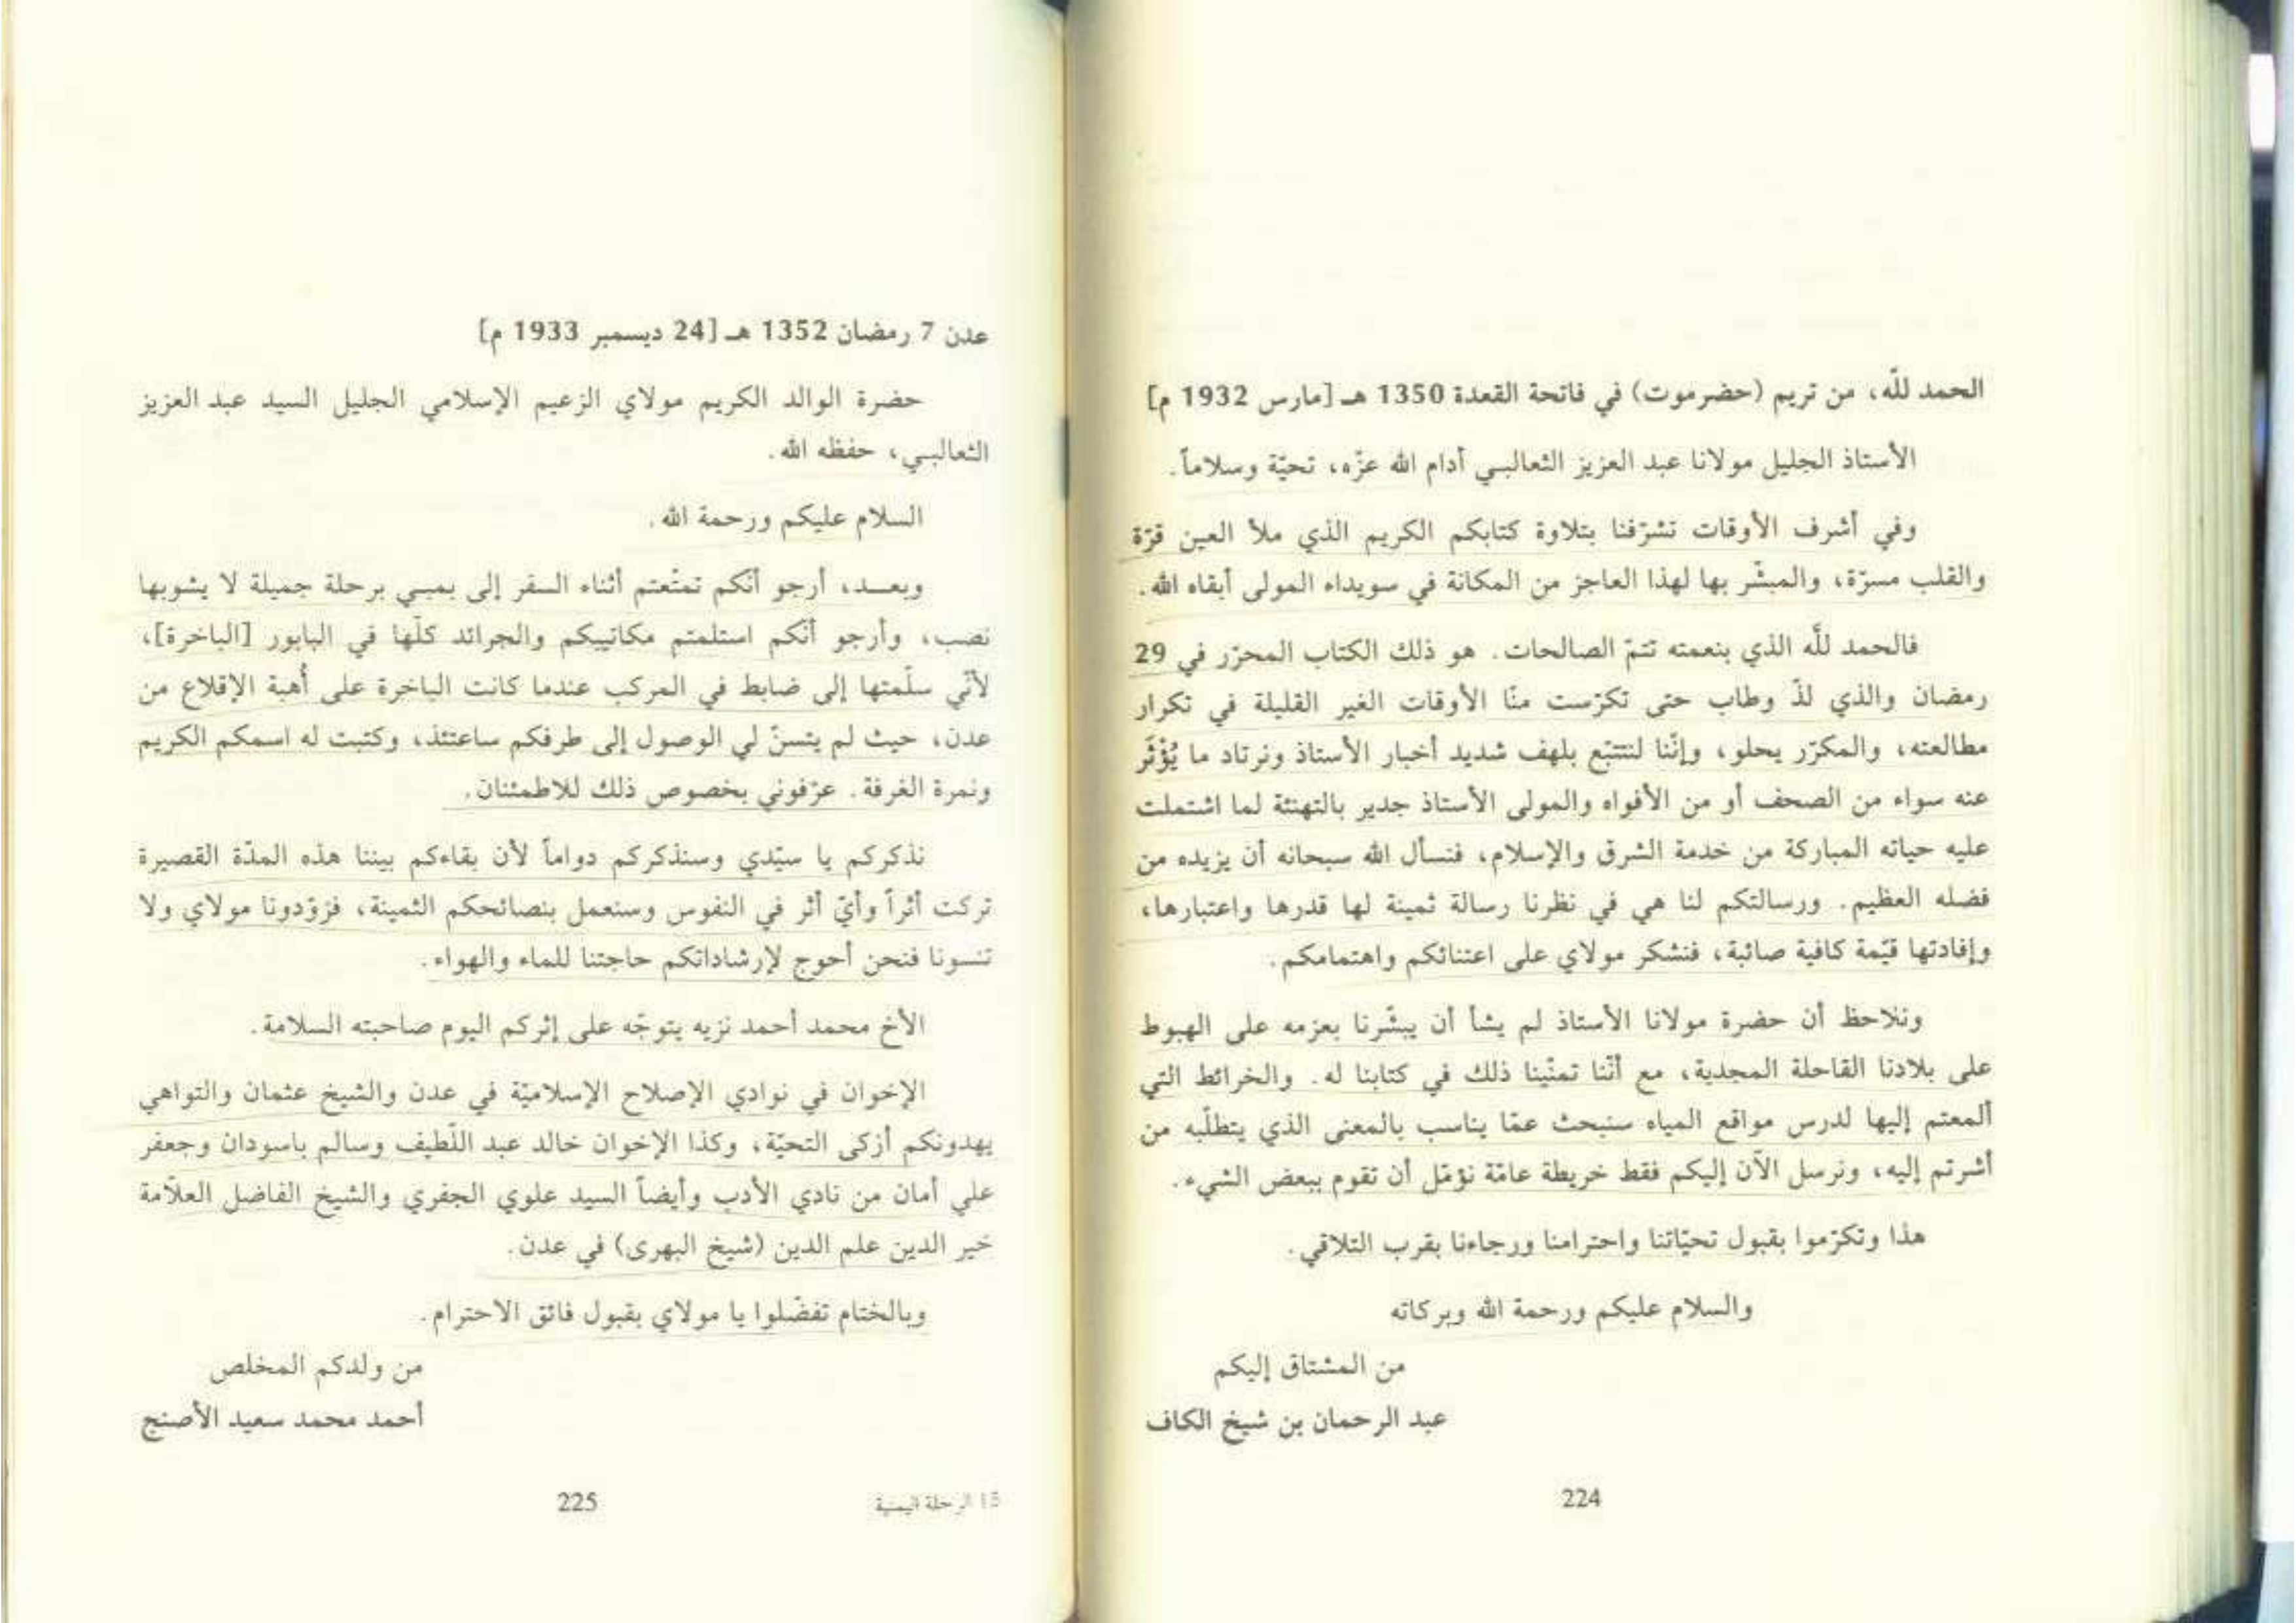 الحمد للّه، من تريم (حضرموت) في فاتحة القعدة 1350 هـ [مارس 1932 م]
الأستاذ الجليل مولانا عبد العزيز الثعالبي أدام الله عزّه، تحيّة وسلاماً.
وفي أشرف الأوقات تشرّفنا بتلاوة كتابكم الكريم الذي ملأ العين قرّة
والقلب مسرّة، والمبشّر بها لهذا العاجز من المكانة في سويداء المولى أبقاه الله.
فالحمد للّه الذي بنعمته تتمّ الصالحات. هو ذلك الكتاب المحرّر في 29
رمضان والذي لذّ وطاب حتى تكرّست منّا الأوقات الغير القليلة في تكرار
مطالعته، والمكرّر يحلو، وإنّنا لنتتبّع بلهف شديد أخبار الأستاذ ونرتاد ما يُؤْثَر
عنه سواء من الصحف أو من الأفواه والمولى الأستاذ جدير بالتهنئة لما اشتملت
عليه حياته المباركة من خدمة الشرق والإسلام، فنسأل الله سبحانه أن يزيده من
فضله العظيم. ورسالتكم لنا هي في نظرنا رسالة ثمينة لها قدرها واعتبارها،
وإفادتها قيّمة كافية صائبة، فنشكر مولاي على اعتنائكم واهتمامكم.
ونلاحظ أن حضرة مولانا الأستاذ لم يشأ أن يبشّرنا بعزمه على الهبوط
على بلادنا القاحلة المجدية، مع أنّنا تمنّينا ذلك في كتابنا له. والخرائط التي
ألمعتم إليها لدرس مواقع المياه سنبحث عمّا يناسب بالمعنى الذي يتطلّبه من
أشرتم إليه، ونرسل الآن إليكم فقط خريطة عامّة نؤمّل أن تقوم ببعض الشيء.
هذا وتكرّموا بقبول تحيّاتنا واحترامنا ورجاءنا بقرب التلاقي.
والسلام عليكم ورحمة الله وبركاته
من المشتاق إليكم
عبد الرحمان بن شيخ الكاف
224
عدن 7 رمضان 1352 هـ [24 ديسمبر 1933 م]
حضرة الوالد الكريم مولاي الزعيم الإسلامي الجليل السيد عبد العزيز
الثعالبي، حفظه الله.
السلام عليكم ورحمة الله.
وبعـد، أرجو أنّكم تمتّعتم أثناء السفر إلى بمبي برحلة جميلة لا يشوبها
نصب، وأرجو أنّكم استلمتم مكاتيبكم والجرائد كلّها في البابور [الباخرة]،
لأنّي سلّمتها إلى ضابط في المركب عندما كانت الباخرة على أُهبة الإقلاع من
عدن، حيث لم يتسنّ لي الوصول إلى طرفكم ساعتئذ، وكتبت له اسمكم الكريم
ونمرة الغرفة. عرّفوني بخصوص ذلك للاطمئنان.
نذكركم يا سيّدي وسنذكركم دواماً لأن بقاءكم بيننا هذه المدّة القصيرة
تركت أثراً وأيّ أثر في النفوس وسنعمل بنصائحكم الثمينة، فزوّدونا مولاي ولا
تنسونا فنحن أحوج لإرشاداتكم حاجتنا للماء والهواء.
الأخ محمد أحمد نزيه يتوجّه على إثركم اليوم صاحبته السلامة.
الإخوان في نوادي الإصلاح الإسلاميّة في عدن والشيخ عثمان والتواهي
يهدونكم أزكى التحيّة، وكذا الإخوان خالد عبد اللّطيف وسالم باسودان وجعفر
علي أمان من نادي الأدب وأيضاً السيد علوي الجفري والشيخ الفاضل العلاّمة
خير الدين علم الدين (شيخ البهرى) في عدن.
وبالختام تفضّلوا يا مولاي بقبول فائق الاحترام.
من ولدكم المخلص
أحمد محمد سعيد الأصنج
15 الرحلة اليمنية
225